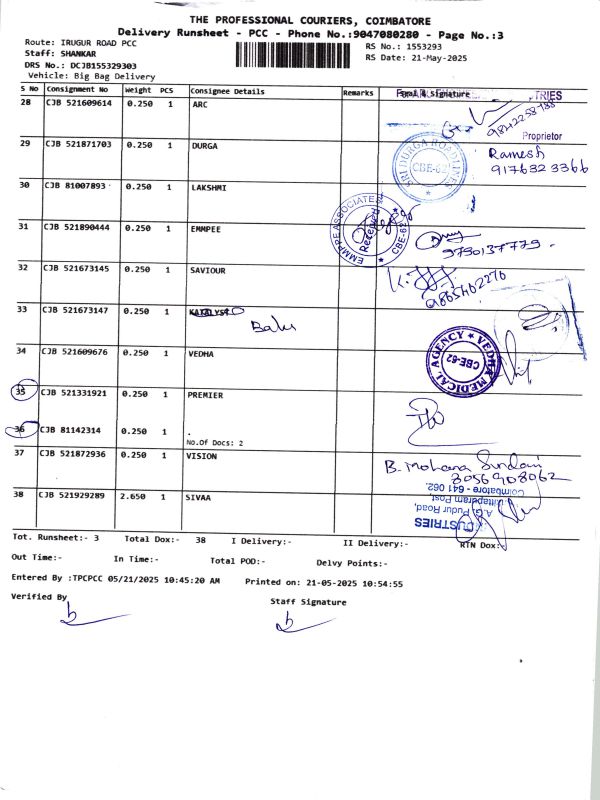 THE PROFESSIONAL COURIERS, COIMBATORE
Delivery Runsheet - PCC - Phone No.:9047080280 - Page No.:3
Route: IRUGUR ROAD PCC
RS No.: 1553293
Staff: SHANKAR
RS Date: 21-May-2025
DRS No.: DCJB155329303
Vehicle: Big Bag Delivery
S No Consignment No Weight PCS Consignee Details Remarks Seal & Signature
28 CJB 521609614 0.250 1 ARC
TRIES
Proprietor
29 CJB 521871703 0.250 1 DURGA
SRI DURGA ROADLINES CBE-62
Ramesh
9176323366
30 CJB 81007893 0.250 1 LAKSHMI
31 CJB 521890444 0.250 1 EMMPEE
EMMPPE ASSOCIATE CBE-62
Received
9790137779
32 CJB 521673145 0.250 1 SAVIOUR
9865462276
33 CJB 521673147 0.250 1 KATALYST
34 CJB 521609676 0.250 1 VEDHA
VEDHA MEDICAL AGENCY CBE-62
35 CJB 521331921 0.250 1 PREMIER
36 CJB 81142314 0.250 1 .
No.Of Docs: 2
37 CJB 521872936 0.250 1 VISION
B. Mohana Sundari
8056908062
38 CJB 521929289 2.650 1 SIVAA
DUSTRIES
A.G. Pudur Road,
Coimbatore - 641 062.
Tot. Runsheet:- 3 Total Dox:- 38 I Delivery:- II Delivery:- RTN Dox:
Out Time:- In Time:- Total POD:- Delvy Points:-
Entered By :TPCPCC 05/21/2025 10:45:20 AM Printed on: 21-05-2025 10:54:55
Verified By Staff Signature